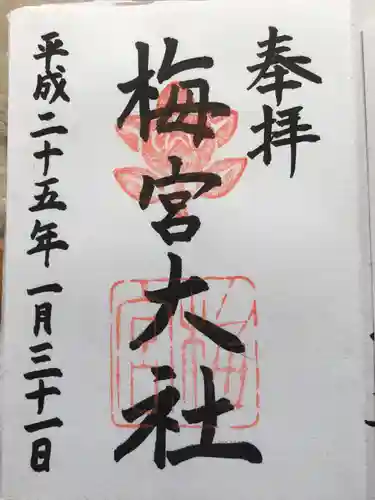 奉拝
梅宮大社
平成二十五年一月三十一日
梅宮